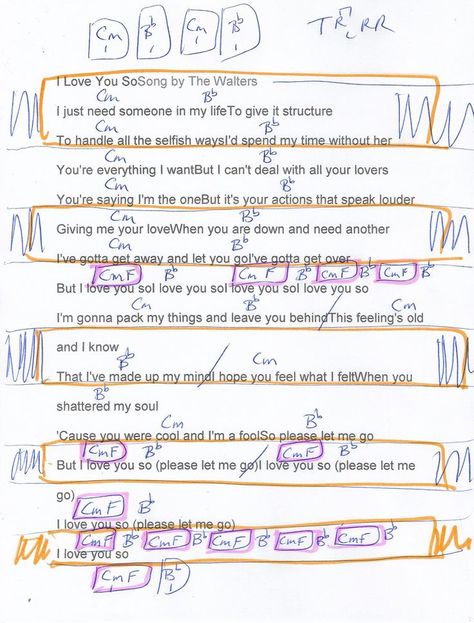 Cm B♭ Cm B♭ TR RR
I Love You SoSong by The Walters
Cm B♭
I just need someone in my lifeTo give it structure
Cm B♭
To handle all the selfish waysI'd spend my time without her
Cm B♭
You're everything I wantBut I can't deal with all your lovers
Cm B♭
You're saying I'm the oneBut it's your actions that speak louder
Cm B♭
Giving me your loveWhen you are down and need another
Cm B♭
I've gotta get away and let you goI've gotta get over
CmF B♭ CmF B♭ CmF B♭ CmF B♭
But I love you soI love you soI love you soI love you so
Cm B♭ Cm
I'm gonna pack my things and leave you behindThis feeling's old
and I know
B♭ Cm
That I've made up my mindI hope you feel what I feltWhen you
B♭
shattered my soul
Cm B♭
'Cause you were cool and I'm a foolSo please let me go
CmF B♭ CmF B♭
But I love you so (please let me go)I love you so (please let me
go)
CmF B♭
I love you so (please let me go)
CmF B♭ CmF B♭ CmF B♭ CmF B♭ CmF B♭
I love you so
CmF B♭